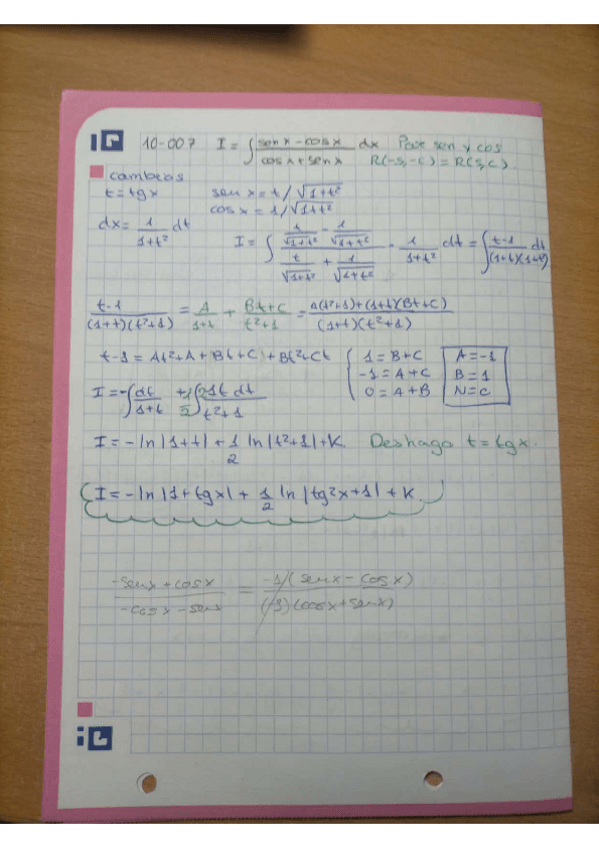 10-007 I = ∫ (sen x - cos x)/(cos x + sen x) dx Par sen y cos
R(-s,-c) = R(s,c).
cambios
t = tg x sen x = t/√(1+t²)
cos x = 1/√(1+t²)
dx = 1/(1+t²) dt I = ∫ (t/√(1+t²) - 1/√(1+t²))/(t/√(1+t²) + 1/√(1+t²)) · 1/(1+t²) dt = ∫ (t-1)/((1+t)(1+t²)) dt
(t-1)/((1+t)(t²+1)) = A/(1+t) + (Bt+C)/(t²+1) = (A(t²+1)+(1+t)(Bt+C))/((1+t)(t²+1))
t-1 = At²+A+Bt+C+Bt²+Ct { 1 = B+C A = -1
-1 = A+C B = 1
0 = A+B N = C
I = -∫ dt/(1+t) + 1/2 ∫ 2t dt/(t²+1)
I = -ln|1+t| + 1/2 ln|t²+1| + K. Deshago t = tg x.
I = -ln|1+tgx| + 1/2 ln|tg²x+1| + K.
(-senx + cosx)/(-cosx - senx) = -1(senx - cosx)/((-1)(cosx + senx))